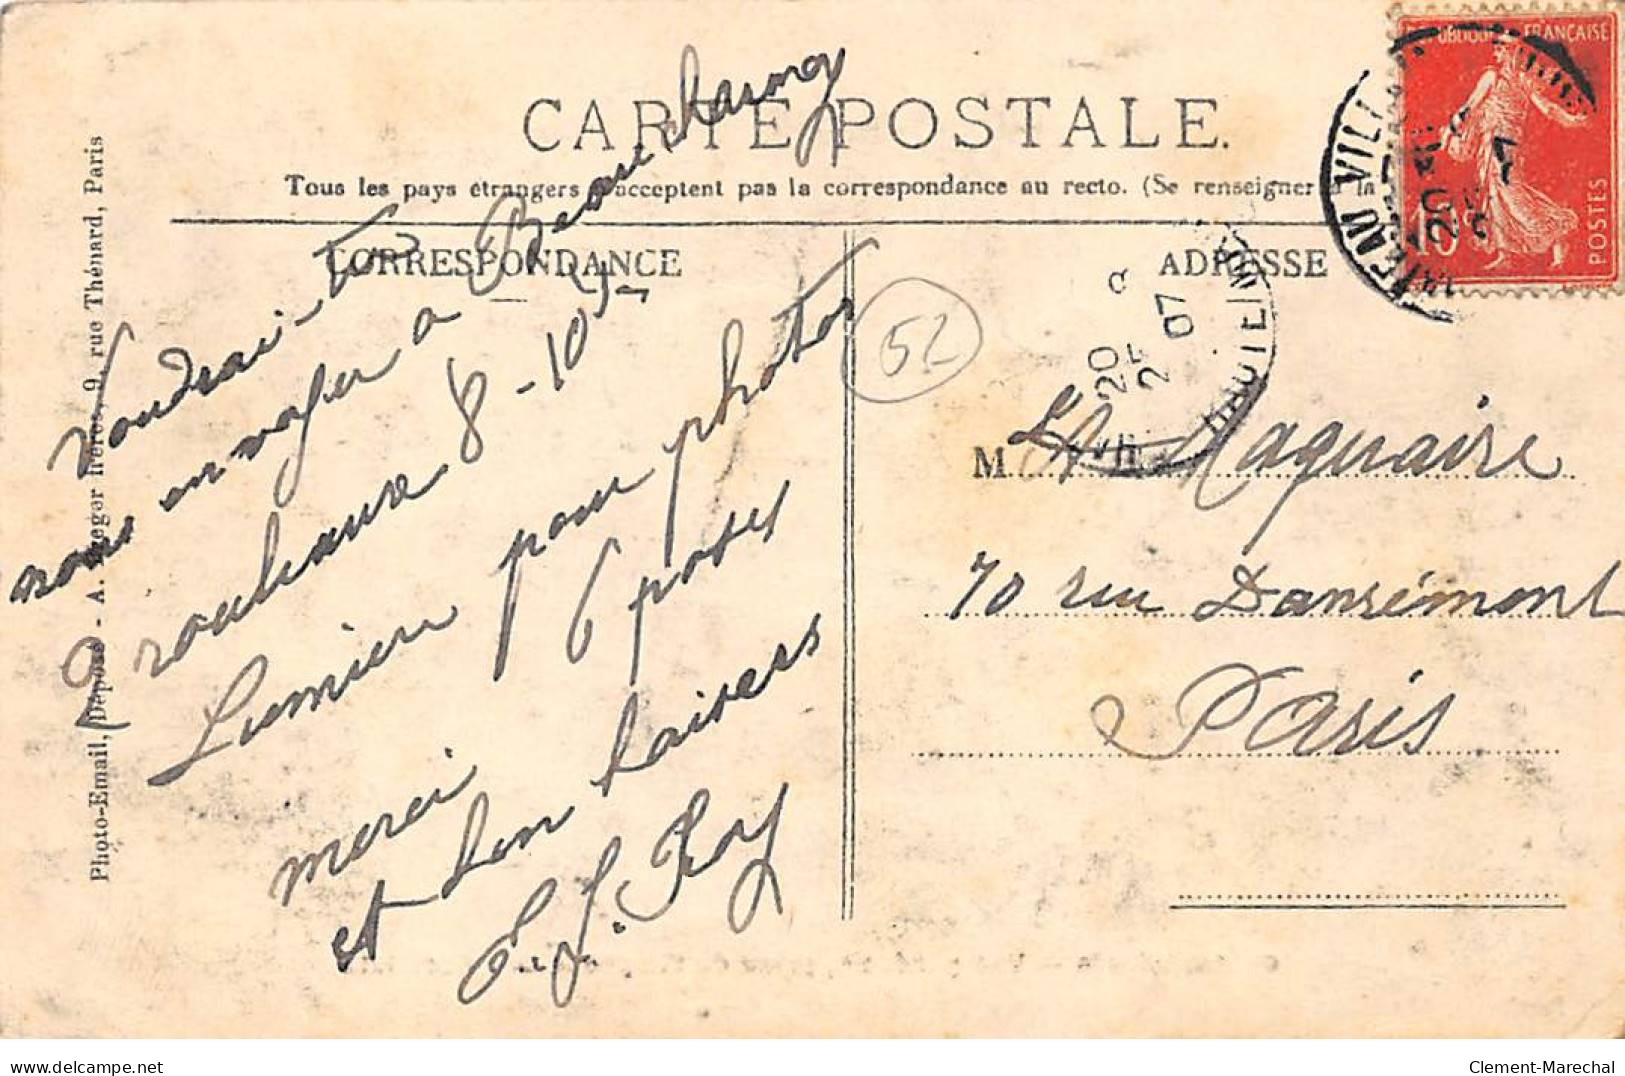 CARTE POSTALE.
Tous les pays étrangers n'acceptent pas la correspondance au recto. (Se renseigner à la
CORRESPONDANCE
ADRESSE
Voudrais-tu
nous envoyer à Beaucharmoy
2 rouleaux 8-10½
Lumiere pour photos
6 poses
merci
et bon baisers
J. Roy
52
M Maquaire
70 rue Danrémont
Paris
Photo-Email, Déposé - A. Breger frères, 9, rue Thénard, Paris
FRANÇAISE
10c
POSTES
20
07
delcampe.net
Clement-Marechal